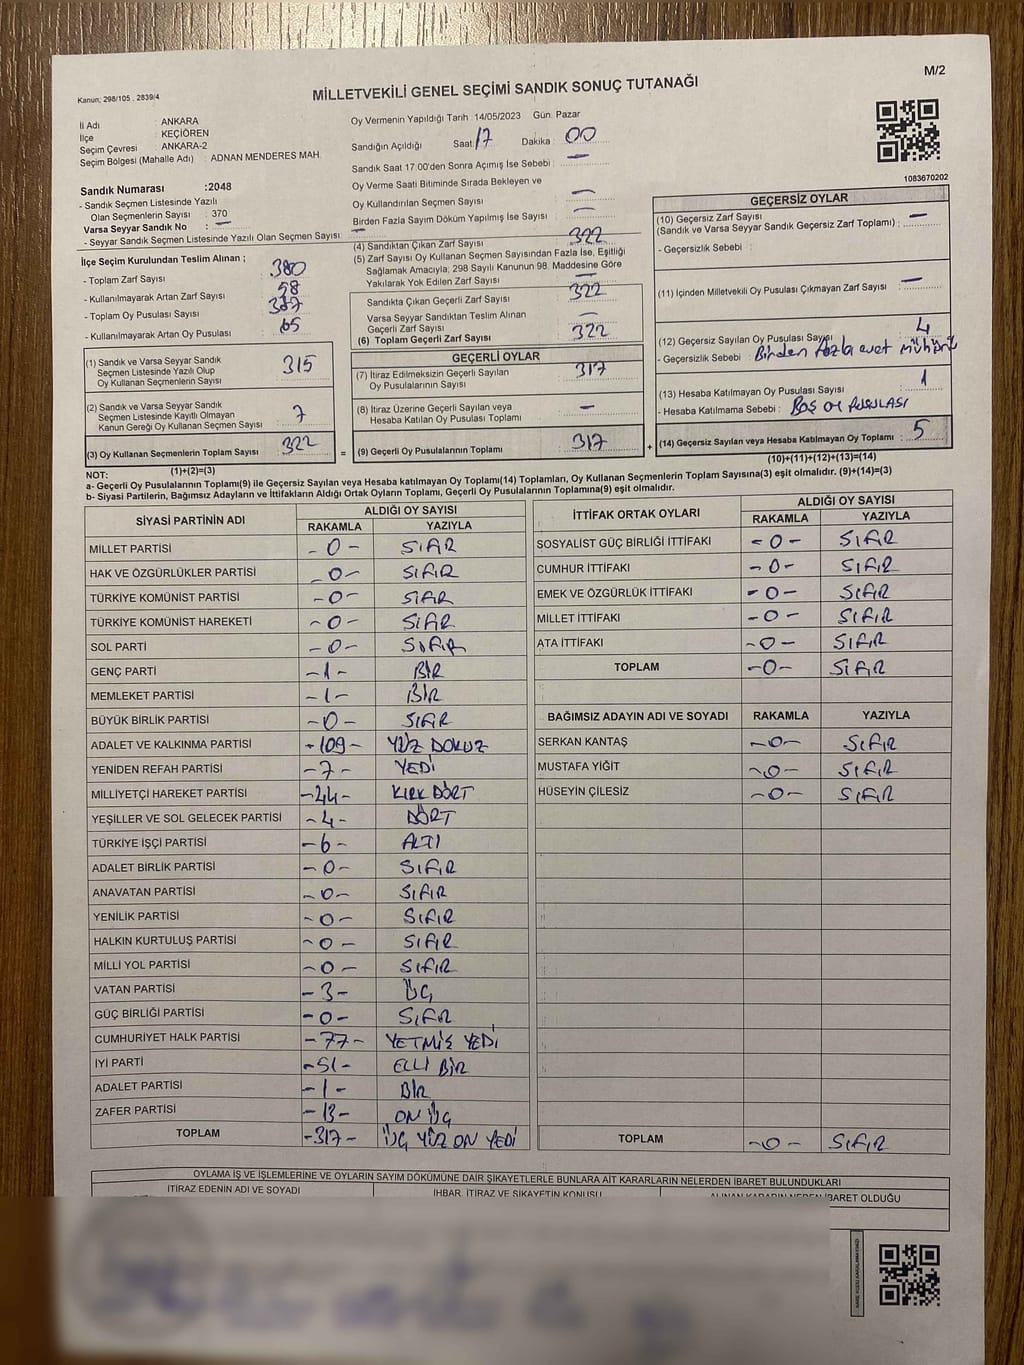 M/2
Kanun; 298/105 , 2839/4
MİLLETVEKİLİ GENEL SEÇİMİ SANDIK SONUÇ TUTANAĞI
İl Adı : ANKARA
İlçe : KEÇİÖREN
Seçim Çevresi : ANKARA-2
Seçim Bölgesi (Mahalle Adı) : ADNAN MENDERES MAH.
Sandık Numarası :2048
- Sandık Seçmen Listesinde Yazılı
Olan Seçmenlerin Sayısı : 370
Varsa Seyyar Sandık No : —
- Seyyar Sandık Seçmen Listesinde Yazılı Olan Seçmen Sayısı: —
Oy Vermenin Yapıldığı Tarih 14/05/2023 Gün: Pazar
Sandığın Açıldığı Saat: 17 Dakika : 00
Sandık Saat 17:00'den Sonra Açımış İse Sebebi : —
Oy Verme Saati Bitiminde Sırada Bekleyen ve
Oy Kullandırılan Seçmen Sayısı : —
Birden Fazla Sayım Döküm Yapılmış İse Sayısı : —
1083670202
İlçe Seçim Kurulundan Teslim Alınan ;
- Toplam Zarf Sayısı : 380
- Kullanılmayarak Artan Zarf Sayısı : 58
- Toplam Oy Pusulası Sayısı : 387
- Kullanılmayarak Artan Oy Pusulası : 65
(1) Sandık ve Varsa Seyyar Sandık
Seçmen Listesinde Yazılı Olup
Oy Kullanan Seçmenlerin Sayısı : 315
(2) Sandık ve Varsa Seyyar Sandık
Seçmen Listesinde Kayıtlı Olmayan
Kanun Gereği Oy Kullanan Seçmen Sayısı : 7
(3) Oy Kullanan Seçmenlerin Toplam Sayısı : 322
(1)+(2)=(3)
(4) Sandıktan Çıkan Zarf Sayısı : 322
(5) Zarf Sayısı Oy Kullanan Seçmen Sayısından Fazla İse, Eşitliği
Sağlamak Amacıyla; 298 Sayılı Kanunun 98. Maddesine Göre
Yakılarak Yok Edilen Zarf Sayısı : —
Sandıkta Çıkan Geçerli Zarf Sayısı : 322
Varsa Seyyar Sandıktan Teslim Alınan
Geçerli Zarf Sayısı : —
(6) Toplam Geçerli Zarf Sayısı : 322
GEÇERLİ OYLAR
(7) İtiraz Edilmeksizin Geçerli Sayılan
Oy Pusulalarının Sayısı : 317
(8) İtiraz Üzerine Geçerli Sayılan veya
Hesaba Katılan Oy Pusulası Toplamı : —
= (9) Geçerli Oy Pusulalarının Toplamı : 317 +
GEÇERSİZ OYLAR
(10) Geçersiz Zarf Sayısı
(Sandık ve Varsa Seyyar Sandık Geçersiz Zarf Toplamı) : —
- Geçersizlik Sebebi :
(11) İçinden Milletvekili Oy Pusulası Çıkmayan Zarf Sayısı : —
(12) Geçersiz Sayılan Oy Pusulası Sayısı : 4
- Geçersizlik Sebebi : Birden fazla evet mühürü
(13) Hesaba Katılmayan Oy Pusulası Sayısı : 1
- Hesaba Katılmama Sebebi : BOŞ OY PUSULASI
(14) Geçersiz Sayılan veya Hesaba Katılmayan Oy Toplamı : 5
(10)+(11)+(12)+(13)=(14)
NOT:
a- Geçerli Oy Pusulalarının Toplamı(9) ile Geçersiz Sayılan veya Hesaba katılmayan Oy Toplamı(14) Toplamları, Oy Kullanan Seçmenlerin Toplam Sayısına(3) eşit olmalıdır. (9)+(14)=(3)
b- Siyasi Partilerin, Bağımsız Adayların ve İttifakların Aldığı Ortak Oyların Toplamı, Geçerli Oy Pusulalarının Toplamına(9) eşit olmalıdır.
SİYASİ PARTİNİN ADI ALDIĞI OY SAYISI
RAKAMLA YAZIYLA
MİLLET PARTİSİ - 0 - SIFIR
HAK VE ÖZGÜRLÜKLER PARTİSİ - 0 - SIFIR
TÜRKİYE KOMÜNİST PARTİSİ - 0 - SIFIR
TÜRKİYE KOMÜNİST HAREKETİ - 0 - SIFIR
SOL PARTİ - 0 - SIFIR
GENÇ PARTİ - 1 - BİR
MEMLEKET PARTİSİ - 1 - BİR
BÜYÜK BİRLİK PARTİSİ - 0 - SIFIR
ADALET VE KALKINMA PARTİSİ - 109 - YÜZ DOKUZ
YENİDEN REFAH PARTİSİ - 7 - YEDİ
MİLLİYETÇİ HAREKET PARTİSİ - 44 - KIRK DÖRT
YEŞİLLER VE SOL GELECEK PARTİSİ - 4 - DÖRT
TÜRKİYE İŞÇİ PARTİSİ - 6 - ALTI
ADALET BİRLİK PARTİSİ - 0 - SIFIR
ANAVATAN PARTİSİ - 0 - SIFIR
YENİLİK PARTİSİ - 0 - SIFIR
HALKIN KURTULUŞ PARTİSİ - 0 - SIFIR
MİLLİ YOL PARTİSİ - 0 - SIFIR
VATAN PARTİSİ - 3 - ÜÇ
GÜÇ BİRLİĞİ PARTİSİ - 0 - SIFIR
CUMHURİYET HALK PARTİSİ - 77 - YETMİŞ YEDİ
İYİ PARTİ - 51 - ELLİ BİR
ADALET PARTİSİ - 1 - BİR
ZAFER PARTİSİ - 13 - ON ÜÇ
TOPLAM - 317 - ÜÇ YÜZ ON YEDİ
İTTİFAK ORTAK OYLARI ALDIĞI OY SAYISI
RAKAMLA YAZIYLA
SOSYALİST GÜÇ BİRLİĞİ İTTİFAKI - 0 - SIFIR
CUMHUR İTTİFAKI - 0 - SIFIR
EMEK VE ÖZGÜRLÜK İTTİFAKI - 0 - SIFIR
MİLLET İTTİFAKI - 0 - SIFIR
ATA İTTİFAKI - 0 - SIFIR
TOPLAM - 0 - SIFIR
BAĞIMSIZ ADAYIN ADI VE SOYADI RAKAMLA YAZIYLA
SERKAN KANTAŞ - 0 - SIFIR
MUSTAFA YİĞİT - 0 - SIFIR
HÜSEYİN ÇİLESİZ - 0 - SIFIR
TOPLAM - 0 - SIFIR
OYLAMA İŞ VE İŞLEMLERİNE VE OYLARIN SAYIM DÖKÜMÜNE DAİR ŞİKAYETLERLE BUNLARA AİT KARARLARIN NELERDEN İBARET BULUNDUKLARI
İTİRAZ EDENİN ADI VE SOYADI
İHBAR, İTİRAZ VE ŞİKAYETİN KONUSU
ALINAN KARARIN NEDEN İBARET OLDUĞU